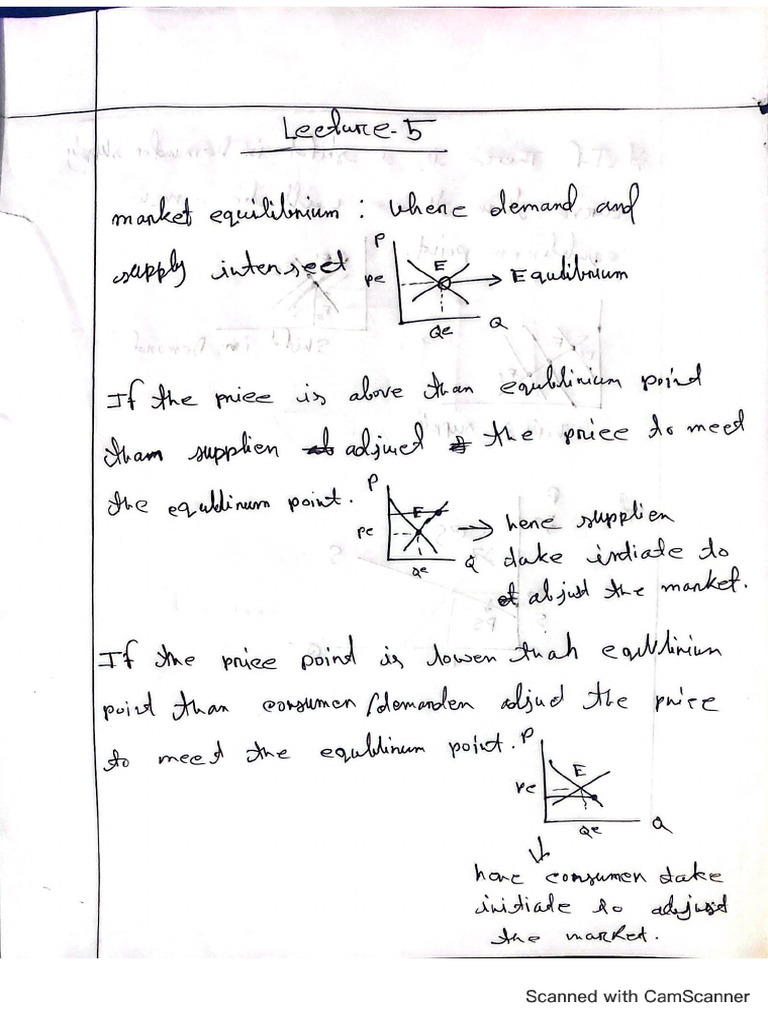 Lecture-5
market equilibrium : where demand and
supply intersect
P
Pe
E
→ Equlibrium
Qe
Q
If the price is above than equlibrium point
tham supplier adjust the price to meet
the equlibrum point.
P
Pe
E
Qe
Q
→ here supplier
take intiate to
adjust the market.
If the price point is lower than equlibrium
point than consumer/demander adjust the price
to meet the equlibrium point.
P
Pe
E
Qe
Q
here consumer take
initiate to adjust
the market.
Scanned with CamScanner